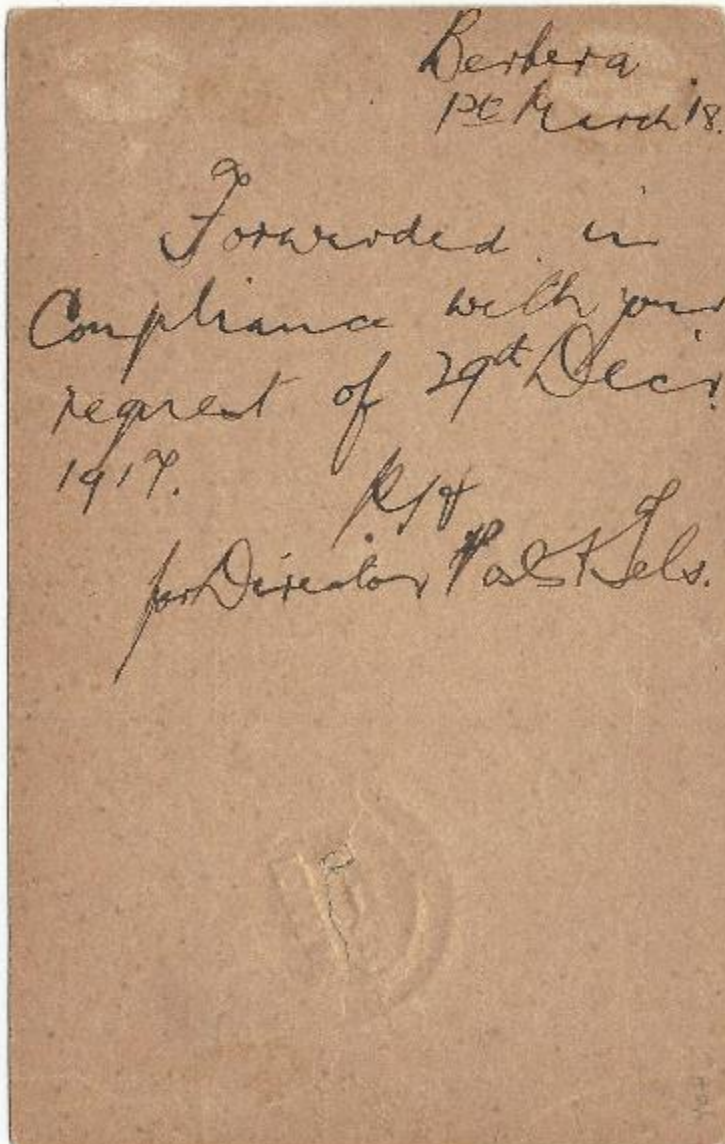 Berbera
1st March 18.
Forwarded in
Compliance with your
request of 29th Decr
1917.
for Director Posts & Tels.